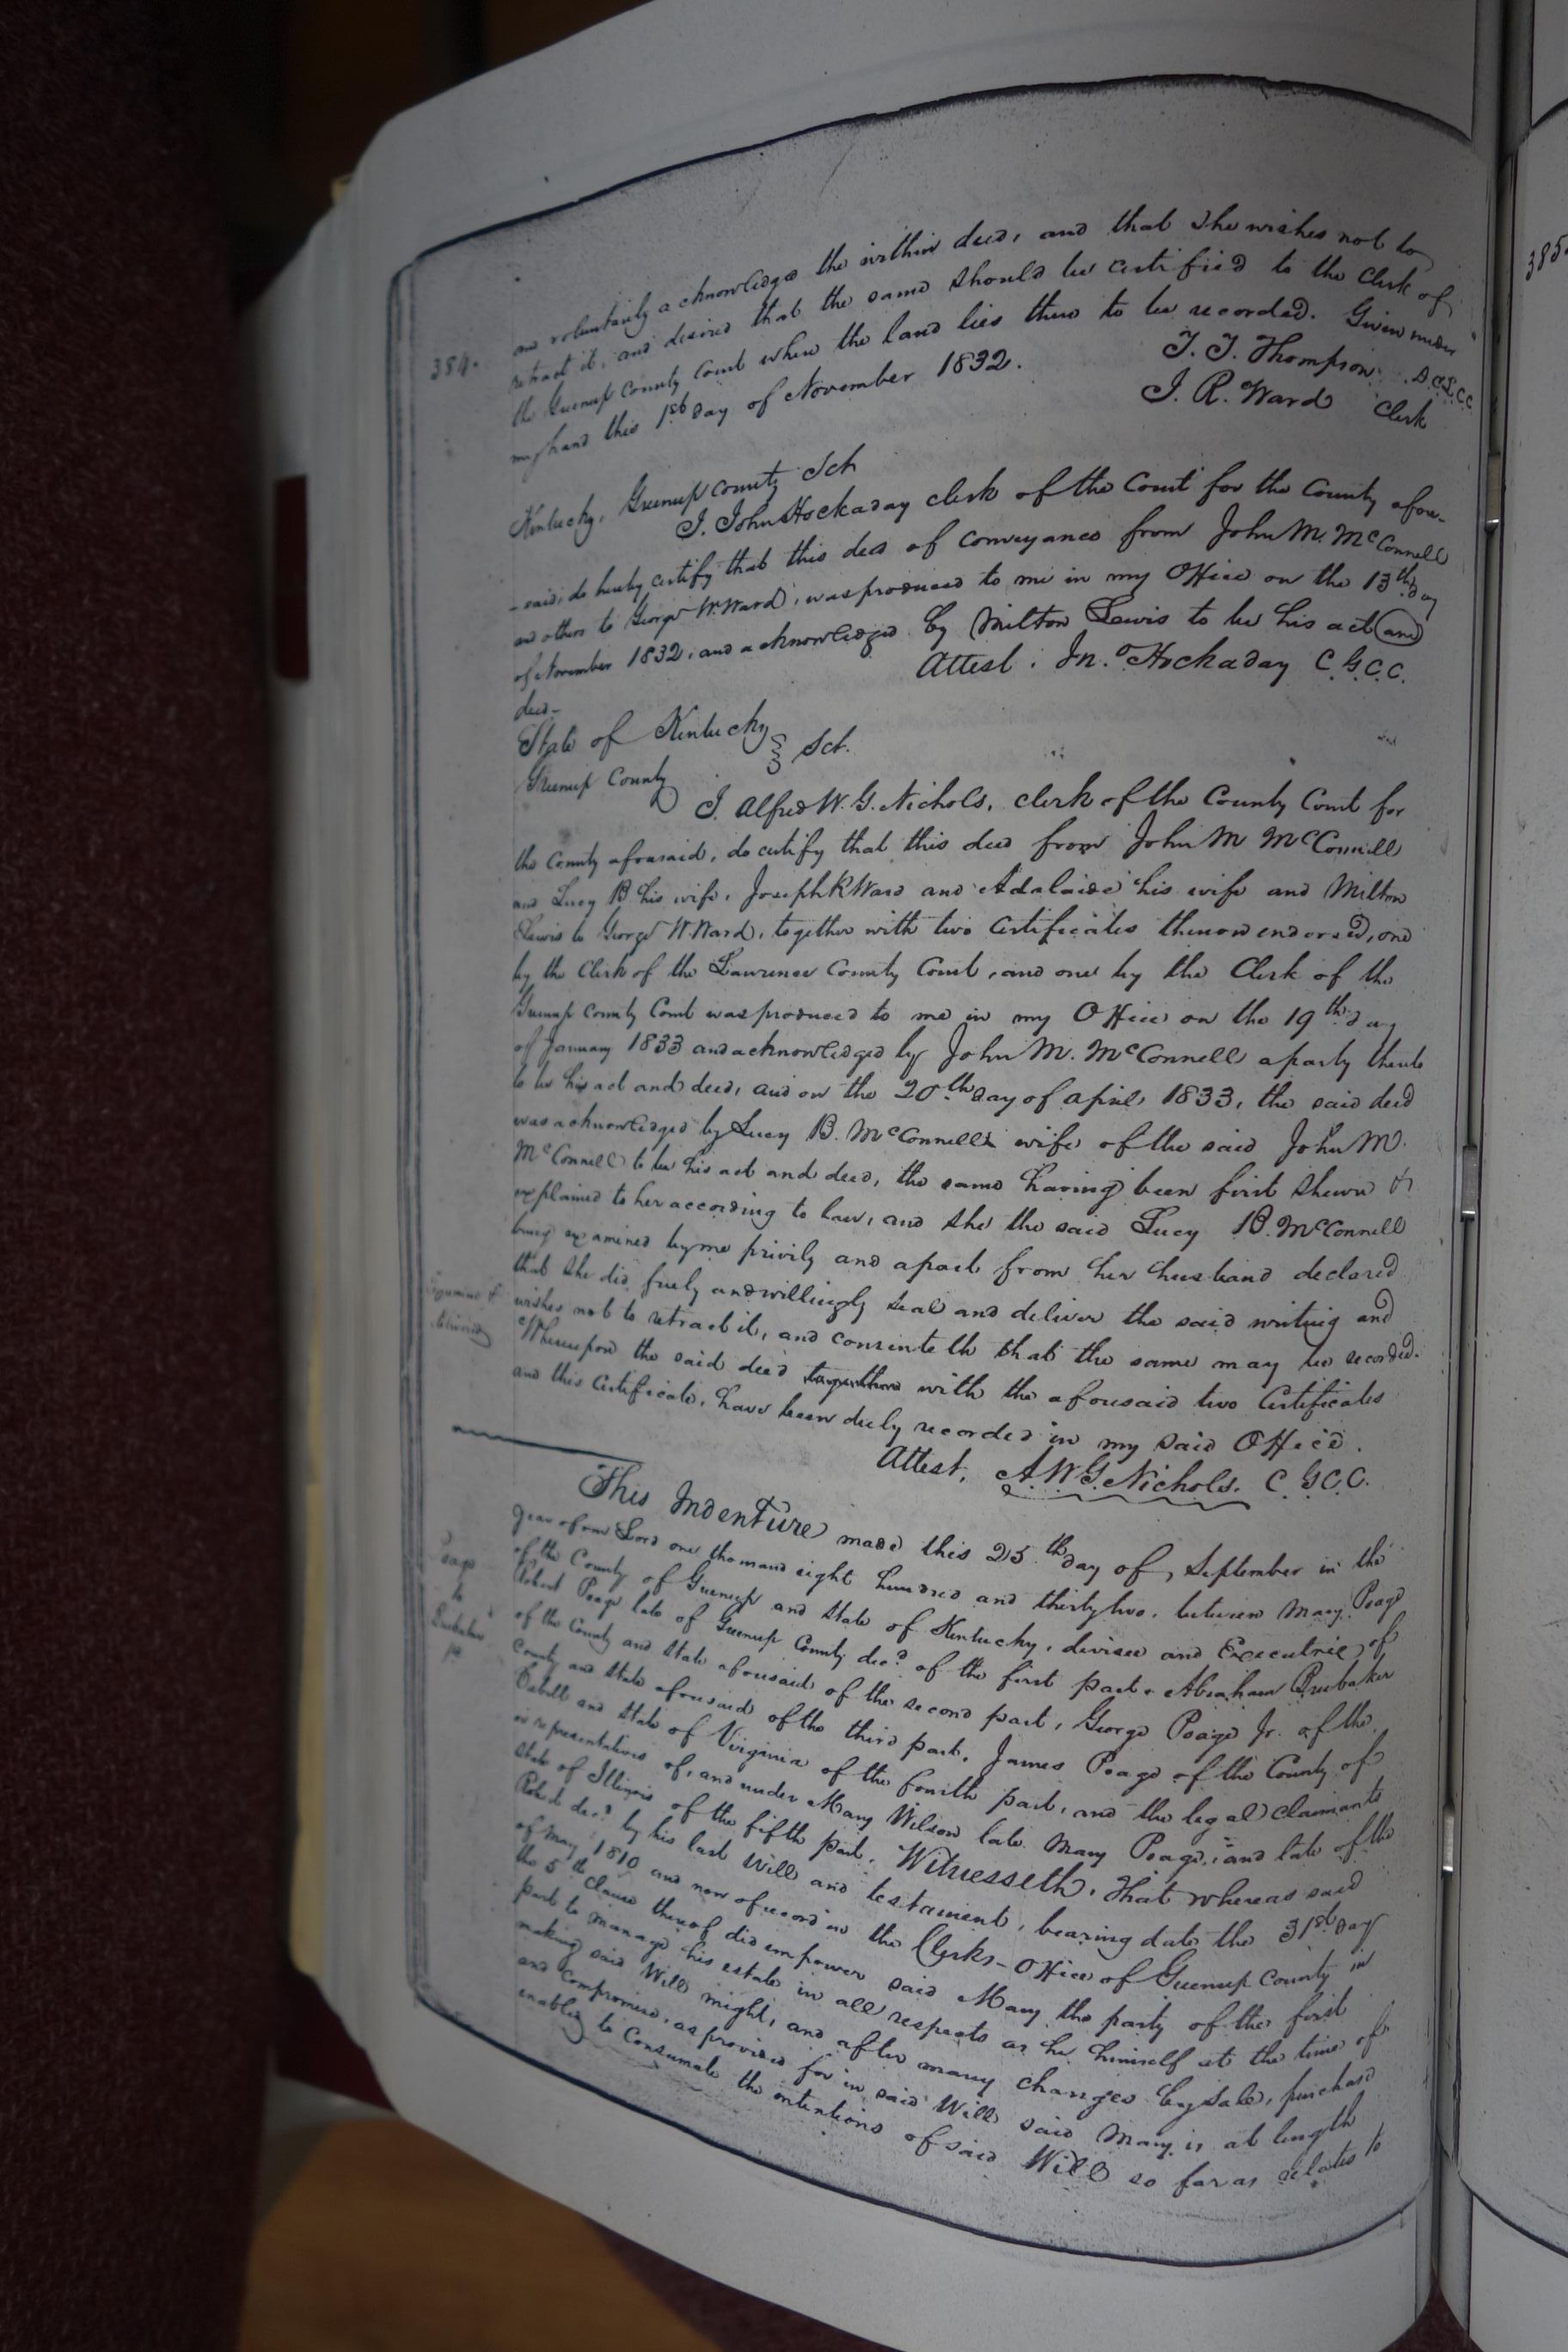 384.
385
and voluntarily acknowledged the within deed, and that she wishes not to
retract it, and desired that the same should be certified to the Clerk of
the Greenup County Court where the land lies there to be recorded. Given under
my hand this 1st day of November 1832.
T. T. Thompson D.C.L.C.C.
J. R. Ward Clerk
Kentucky, Greenup County Sct
I. John Hockaday clerk of the Court for the County afore-
-said, do hereby certify that this deed of conveyance from John M. McConnell
and others to George W. Ward, was produced to me in my Office on the 13th day
of November 1832, and acknowledged by Milton Lewis to be his act and
deed-
Attest. Jno. Hockaday C.G.C.C.
State of Kentucky
Greenup County } Sct.
I. Alfred W. G. Nichols, clerk of the County Court for
the County aforesaid, do certify that this deed from John M McConnell
and Lucy B his wife, Joseph R Ward and Adalaide his wife and Milton
Lewis to George W. Ward, together with two Certificates thereon endorsed, one
by the Clerk of the Lawrence County Court, and one by the Clerk of the
Greenup County Court was produced to me in my Office on the 19th day
of January 1833 and acknowledged by John M. McConnell a party thereto
to be his act and deed, and on the 20th day of april, 1833, the said deed
was acknowledged by Lucy B. McConnell wife of the said John M.
McConnell to be his act and deed, the same having been first shewn &
explained to her according to law, and she the said Lucy B. McConnell
being examined by me privily and apart from her husband declared
that she did freely and willingly seal and deliver the said writing and
wishes not to retract it, and consenteth that the same may be recorded.
Examined &
delivered
Whereupon the said deed together with the aforesaid two Certificates
and this Certificate, have been duly recorded in my said Office.
Attest, A. W. G. Nichols. C.G.C.C.
This Indenture made this 25th day of September in the
year of our Lord one thousand eight hundred and thirty two, between Mary Poage
of the County of Greenup and State of Kentucky, devisee and Executrix of
Robert Poage late of Greenup County decd. of the first part, Abraham Brubaker
of the County and State aforesaid of the second part, George Poage Jr. of the
County and State aforesaid of the third part, James Poage of the County of
Cabell and State of Virginia of the fourth part, and the legal claimants
or representatives of, and under Mary Wilson late Mary Poage, and late of the
State of Illinois of the fifth part, Witnesseth, That whereas said
Robert decd. by his last Will and testament, bearing date the 31st day
of May 1810 and now of record in the Clerks-Office of Greenup County in
the 5th clause thereof did empower said Mary the party of the first
part to manage his estate in all respects as he himself at the time of
making said Will might, and after many changes by sale, purchase
and compromise, as provided for in said Will said Mary is at length
enabled to Consumate the intentions of said Will so far as relates to
Poage
to
Brubaker